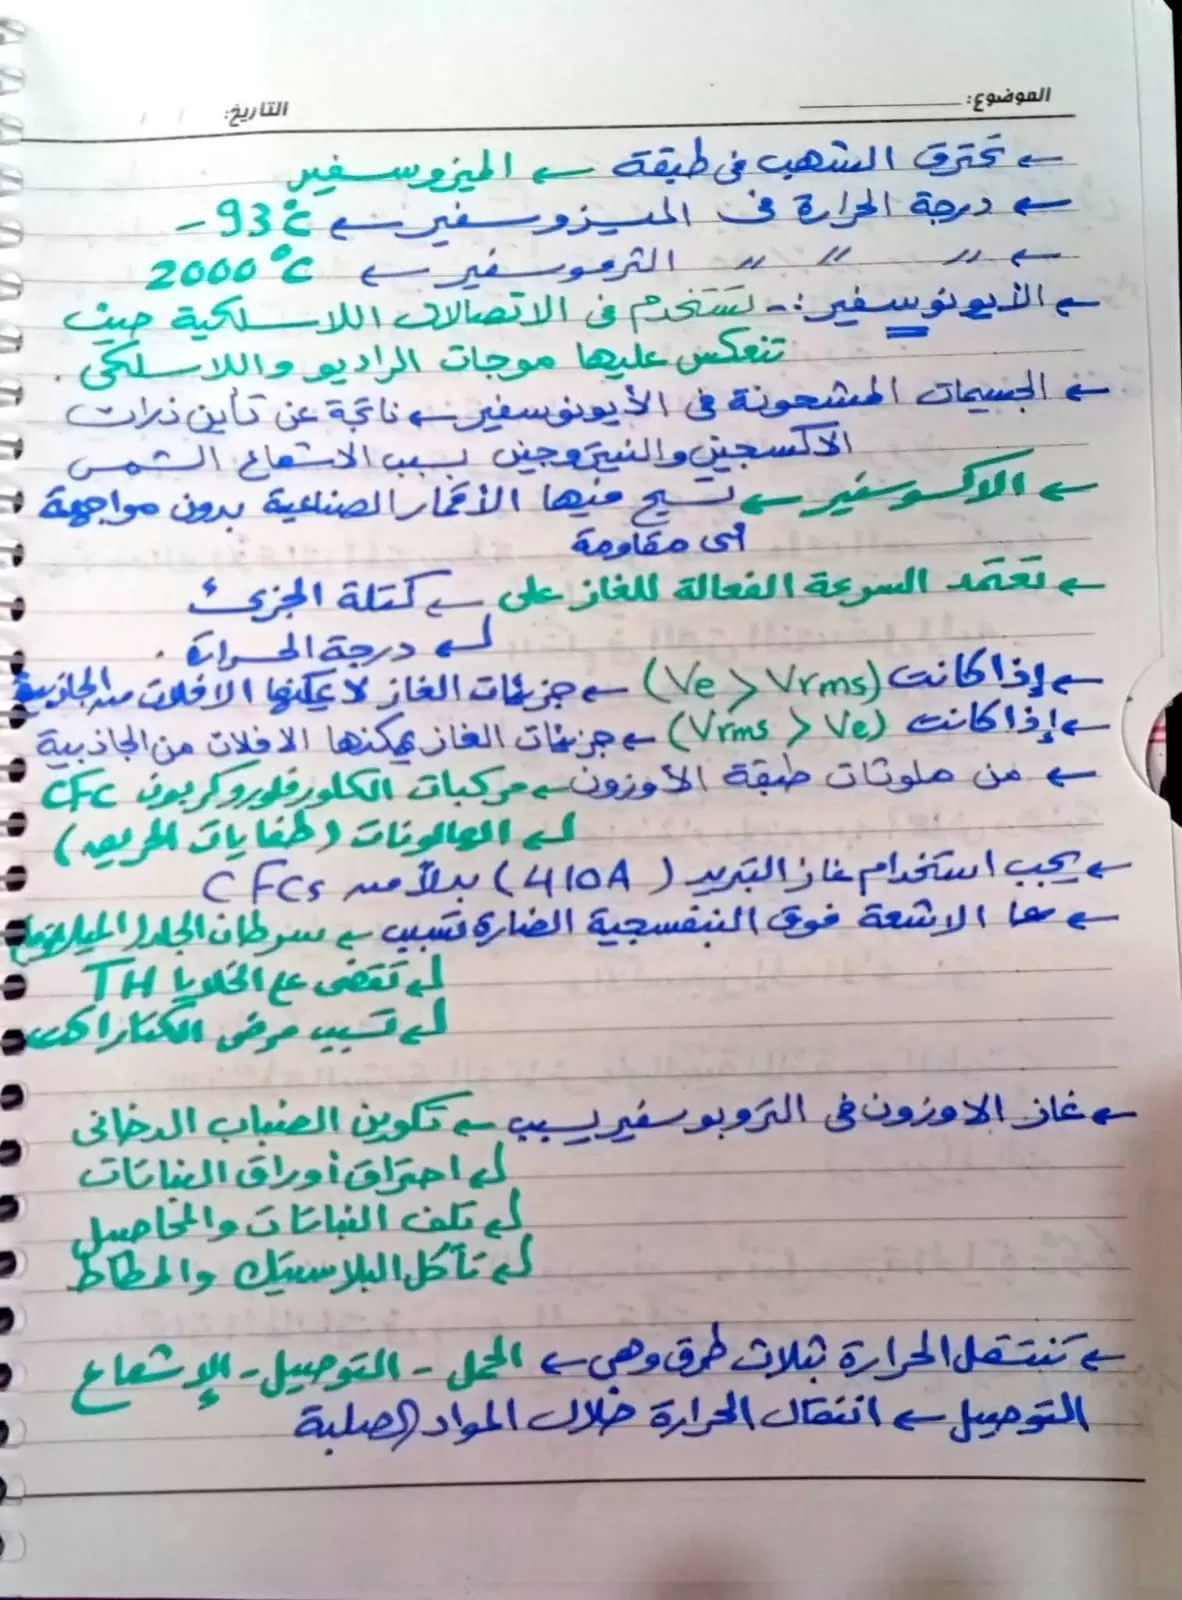 الموضوع: التاريخ: / /
← تحترق الشهب فى طبقة ← الميزوسفير
← درجة الحرارة فى الميزوسفير ← 93°c -
← 〃 〃 〃 الثرموسفير ← 2000°c
← الأيونوسفير :- تستخدم فى الاتصالات اللاسلكية حيث
تنعكس عليها موجات الراديو واللاسلكى .
← الجسيمات المشحونة فى الأيونوسفير ← ناتجة عن تأين ذرات
الاكسجين والنيتروجين بسبب الاشعاع الشمس
← الاكسوسفير ← تسبح فيها الأقمار الصناعية بدون مواجهة
أى مقاومة
← تعتمد السرعة الفعالة للغاز على ← كتلة الجزئ
↲ درجة الحرارة .
← إذا كانت (Ve > Vrms) ← جزيئات الغاز لا يمكنها الافلات من الجاذبية
← إذا كانت (Vrms > Ve) ← جزيئات الغاز يمكنها الافلات من الجاذبية
← من ملوثات طبقة الأوزون ← مركبات الكلوروفلوروكربون CFC
↲ الهالونات (طفايات الحريق)
← يجب استخدام غاز التبريد (410A) بدلاً من CFCs
← الاشعة فوق البنفسجية الضارة تسبب ← سرطان الجلد (الميلانوما)
↲ تقضى على الخلايا TH
↲ تسبب مرض الكتاراكت
← غاز الاوزون فى التروبوسفير يسبب ← تكوين الضباب الدخانى
↲ احتراق أوراق النباتات
↲ تلف النباتات والمحاصيل
↲ تأكل البلاستيك والمطاط
← تنتقل الحرارة بثلاث طرق وهى ← الحمل - التوصيل - الإشعاع
التوصيل ← انتقال الحرارة خلال المواد الصلبة